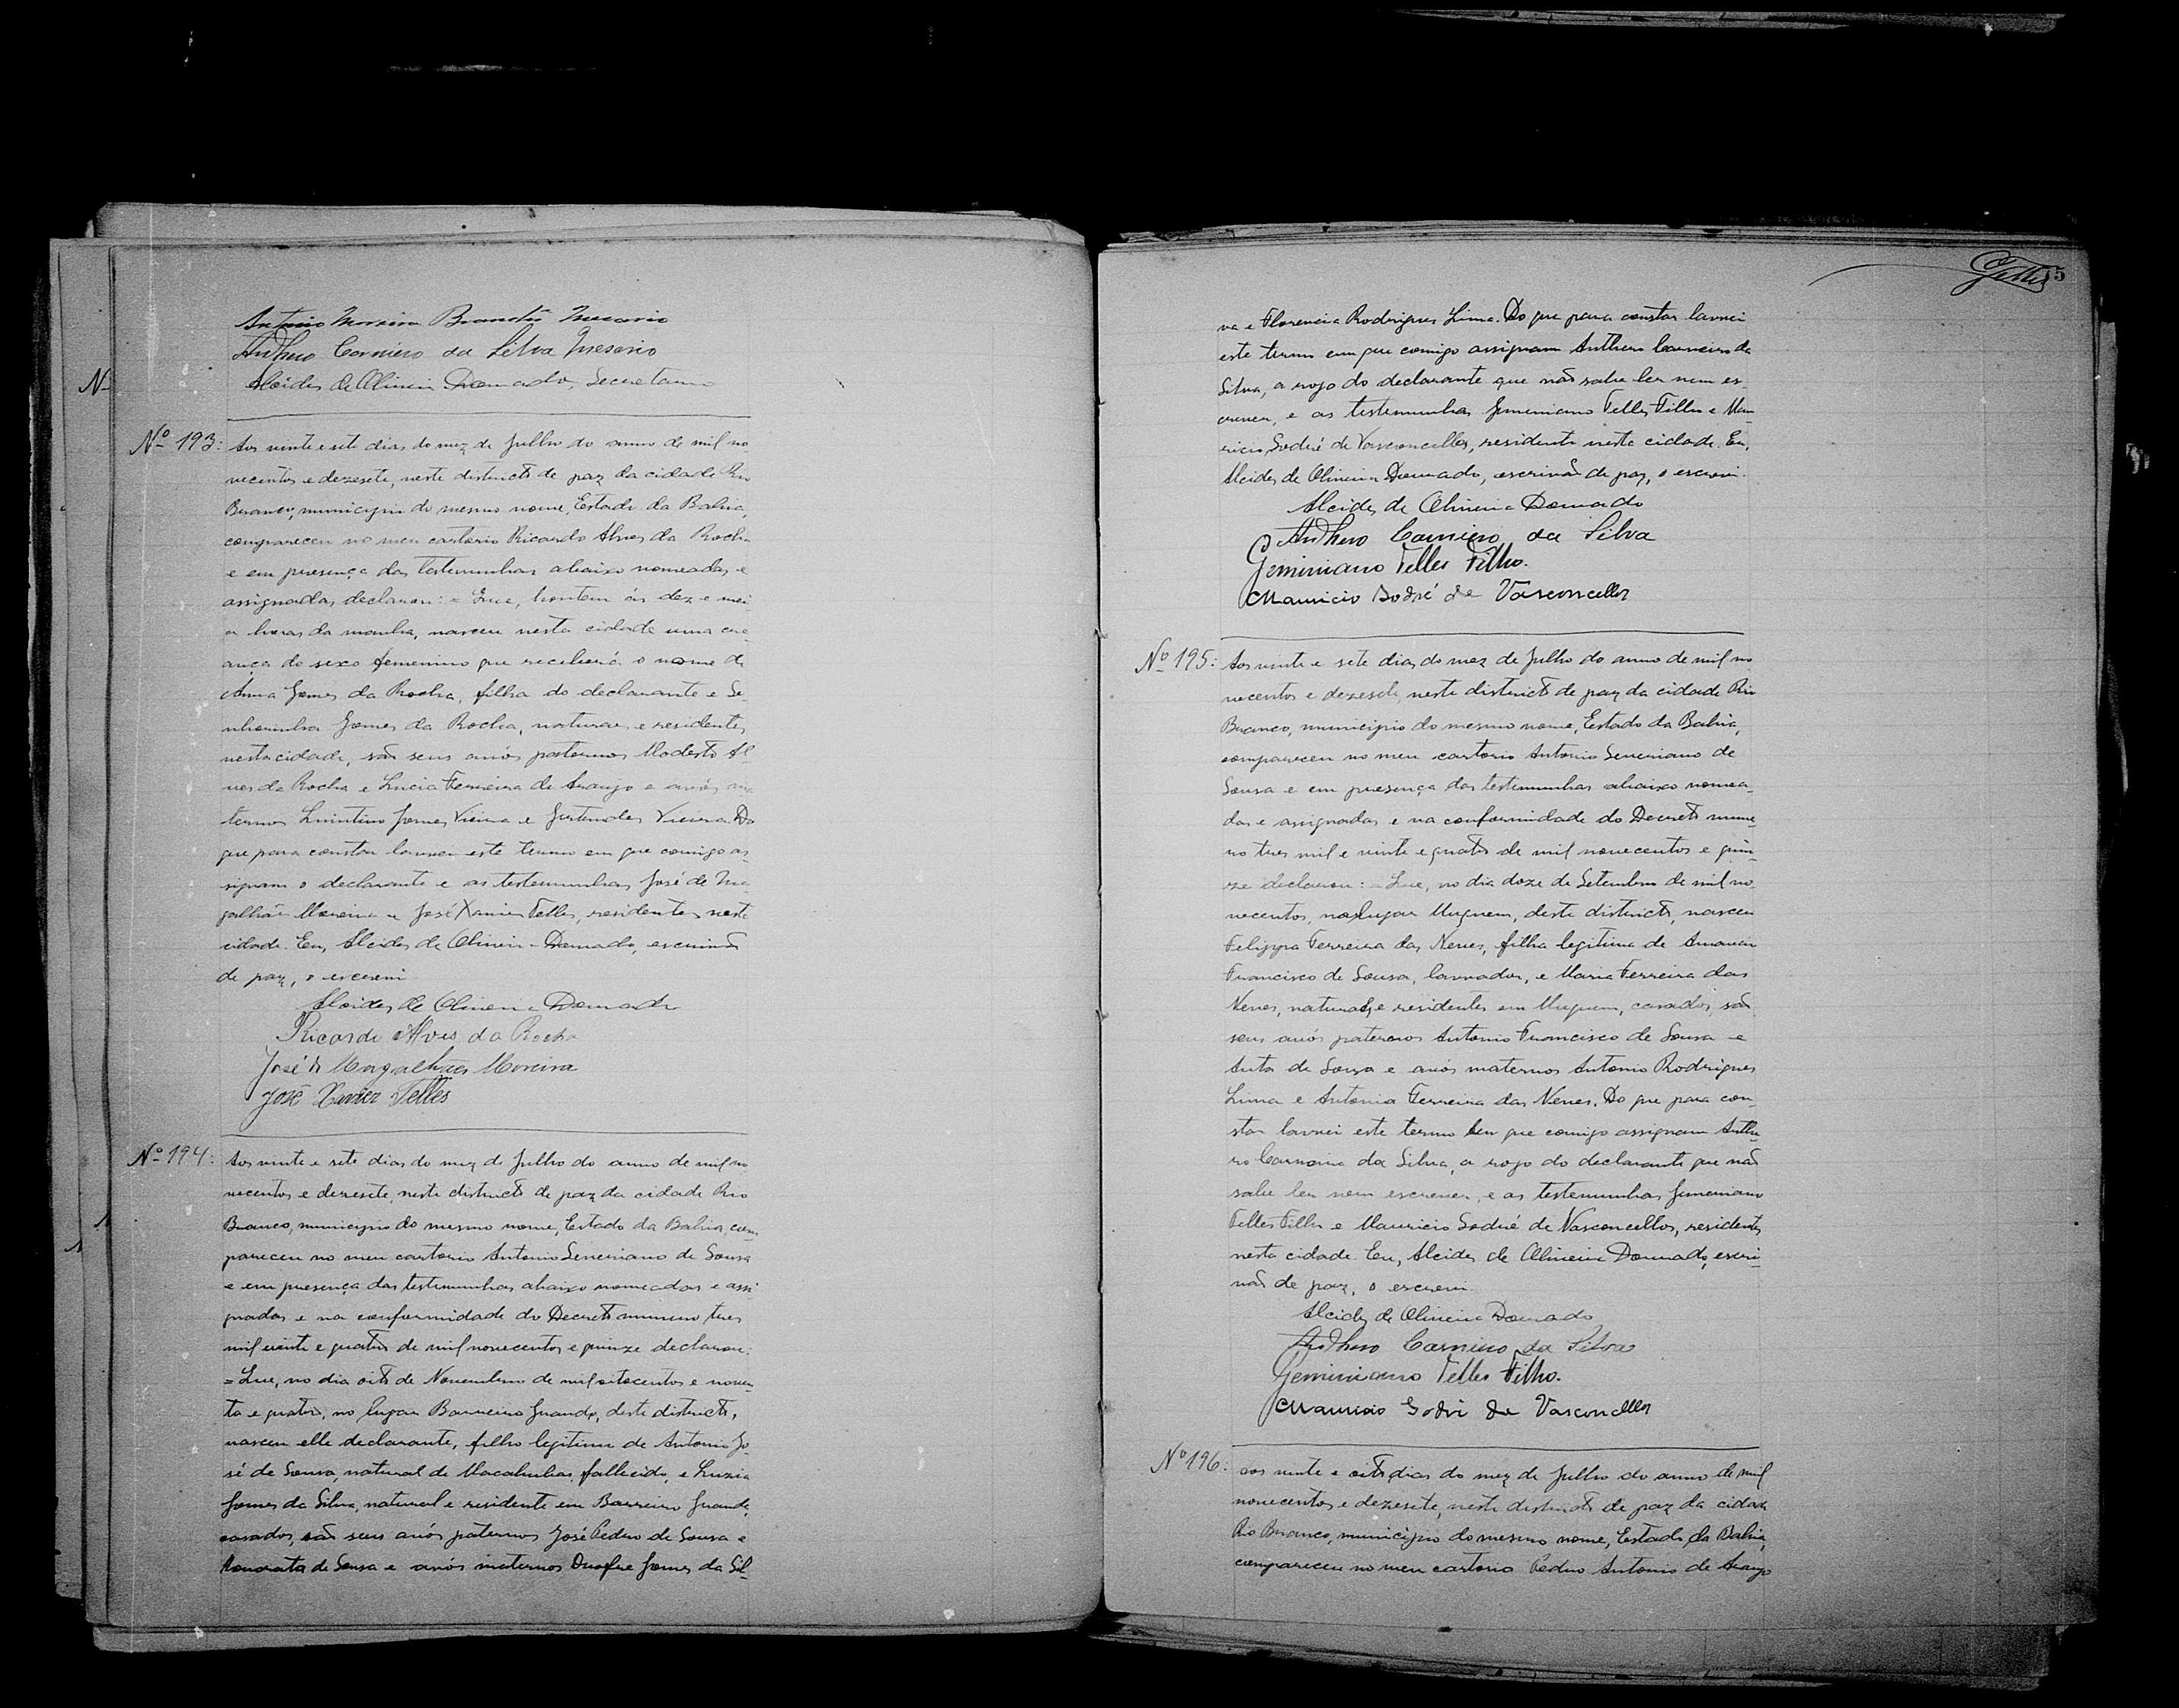 Antonio Moreira Brandão Mesario
Anthero Carneiro da Silva Mesario
Alcides de Oliveira Dourado, Secretario
Nº 193: Aos vinte e sete dias do mez de Julho do anno de mil no-
vecentos e dezesete, neste districto de paz da cidade Rio
Branco, municipio do mesmo nome, Estado da Bahia,
compareceu no meu cartorio Ricardo Alves da Rocha
e em presença das testemunhas abaixo nomeadas e
assignadas, declarou: = Que, hontem ás dez e mei
a horas da manha, nasceu nesta cidade uma cre-
ança do sexo femenino que receberá o nome de
Anna Gomes da Rocha, filha do declarante e Se-
nhorinha Gomes da Rocha, naturaes e residentes
nesta cidade, são seus avós paternos Modesto Al
ves da Rocha e Lucia Ferreira de Araujo e avós ma
ternos Quintino Gomes Vieira e Gertrudes Vieira. Do
que para constar lavrei este termo em que comigo as-
signam o declarante e as testemunhas José de Ma-
galhães Moreira e José Xavier Telles, residentes nesta
cidade. Eu, Alcides de Oliveira Dourado, escrivão
de paz, o escrevi
Alcides de Oliveira Dourado
Ricardo Alves da Rocha
José de Magalhães Moreira
José Xavier Telles
Nº 194: Aos vinte e sete dias do mez de Julho do anno de mil no-
vecentos e dezesete, neste districto de paz da cidade Rio
Branco, municipio do mesmo nome, Estado da Bahia, com
pareceu no meu cartorio Antonio Severiano de Sousa
e em presença das testemunhas abaixo nomeadas e assi
gnadas e na conformidade do Decreto numero tres
mil vinte e quatro de mil novecentos e quinze declarou:
= Que, no dia oito de Novembro de mil oitocentos e noven-
ta e quatro, no lugar Barreiro Grande, deste districto,
nasceu elle declarante, filho legitimo de Antonio Jo-
sé de Sousa, natural de Macahubas, fallecido, e Luzia
Gomes da Silva, natural e residente em Barreiro Grande,
casados, são seus avós paternos José Pedro de Sousa e
Honorata de Sousa e avós maternos Onofre Gomes da Sil-
Telles 5
va e Florencia Rodrigues Lima. Do que para constar lavrei
este termo em que comigo assignam Anthero Carneiro da
Silva, a rogo do declarante que não sabe ler nem es-
crever, e as testemunhas Geminiano Telles Filho e Mau
ricio Sodré de Vasconcellos, residente nesta cidade. Eu,
Alcides de Oliveira Dourado, escrivão de paz, o escrevi.
Alcides de Oliveira Dourado
Anthero Carneiro da Silva
Geminiano Telles Filho.
Mauricio Sodré de Vasconcellos
Nº 195: Aos vinte e sete dias do mez de Julho do anno de mil no
vecentos e dezesete, neste districto de paz da cidade Rio
Branco, municipio do mesmo nome, Estado da Bahia,
compareceu no meu cartorio Antonio Severiano de
Sousa e em presença das testemunhas abaixo nomea-
das e assignadas e na conformidade do Decreto nume-
ro tres mil e vinte e quatro de mil novecentos e quin-
ze declarou: = Que, no dia doze de Setembro de mil no-
vecentos, no lugar Muquem, deste districto, nasceu
Felippa Ferreira das Neves, filha legitima de
Francisco de Sousa, lavrador, e Maria Ferreira das
Neves, naturaes e residentes em Muquem, casados, são
seus avós paternos Antonio Francisco de Sousa e
Anta de Souza e avós maternos Antonio Rodrigues
Lima e Antonia Ferreira das Neves. Do que para con-
star lavrei este termo em que comigo assignam Anthe-
ro Carneiro da Silva, a rogo do declarante que não
sabe ler nem escrever, e as testemunhas Geminiano
Telles Filho e Mauricio Sodré de Vasconcellos, residentes
nesta cidade. Eu, Alcides de Oliveira Dourado, escri-
vão de paz, o escrevi.
Alcides de Oliveira Dourado
Anthero Carneiro da Silva
Geminiano Telles Filho.
Mauricio Sodré de Vasconcellos
Nº 196: Aos vinte e oito dias do mez de Julho do anno de mil
novecentos e dezesete, neste districto de paz da cidade
Rio Branco, municipio do mesmo nome, Estado da Bahia,
compareceu no meu cartorio Pedro Antonio de Araujo